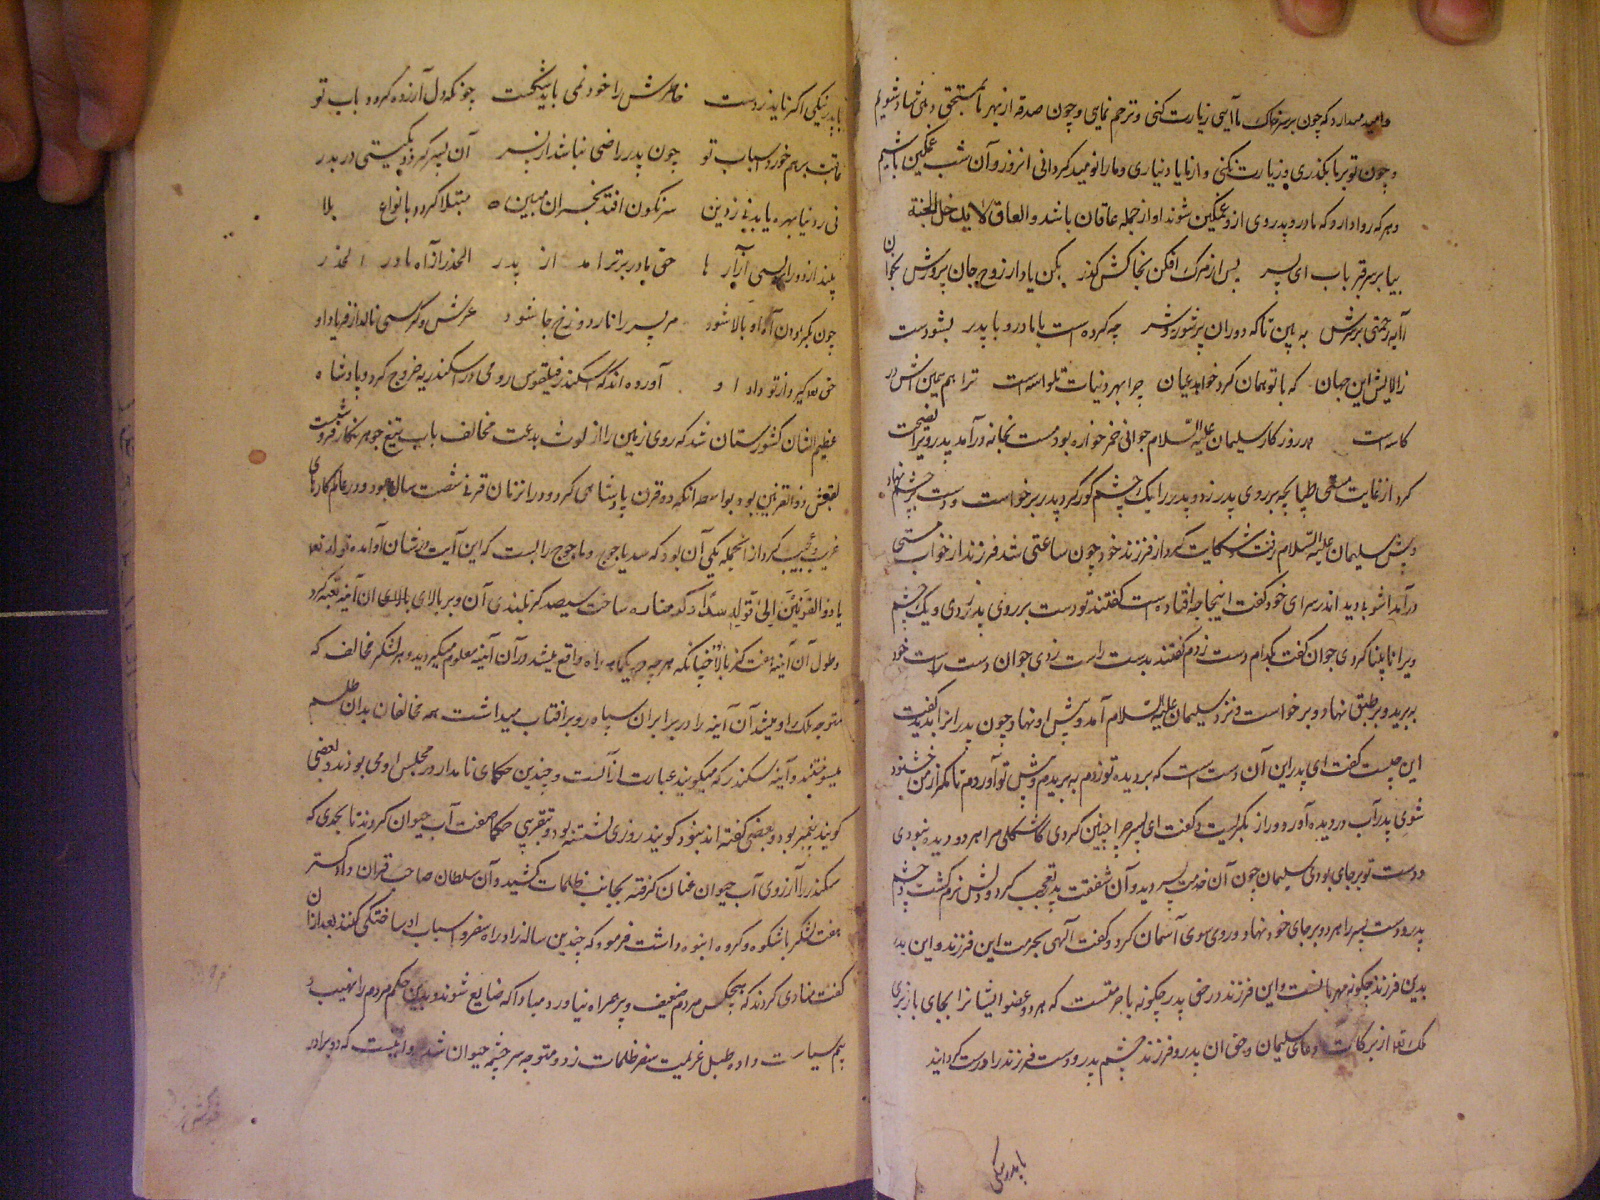 و امید میدارد که چون بر سر خاک ما آیی زیارت کنی و ترحم نمایی و چون صدقه از بهر ما بمستحق دهی شاد شویم
و چون تو بر ما بگذری و زیارت نکنی و از ما یاد نیاری و ما را نومید گردانی آنروز و آن شب غمگین باشیم
و هر که روا دارد که مادر و پدر وی از وی غمگین شوند او از جمله عاقان باشد والعاق لا یدخل الجنة
بیا بر سر قبر باب ای پسر پس از مرگ افکن بخاکش گذر بکن یاد از روح جان پرورش بخوان
آیه رحمتی بر سرش به بین تا که دوران پر شور و شر چه کرده است با مادر و با پدر بشو دست
ز آلایش این جهان که با تو همان کرد خواهد عیان چرا بهر دنیات تلواسه است ترا هم همین آش در
کاسه است در روزگار سلیمان علیه السلام جوانی خمر خواره بود مست بخانه درآمد پدر ویرا نصیحت
کرد از غایت مستی طپانچه بر روی پدر زد و پدر را یک چشم کور کرد پدر برخواست و دست بر چشم نهاد
و پیش سلیمان علیه السلام رفت شکایت کرد از فرزند خود چون ساعتی شد فرزند از خواب مستی
درآمد آشوب دید اندر سرای خود گفت اینجا چه افتاده است گفتند تو دست بر روی پدر زدی و یک چشم
ویرا نابینا کردی جوان گفت بکدام دست زدم گفتند بدست راست زدی جوان دست راست خود
ببرید و بر طبق نهاد و برخواست و نزد سلیمان علیه السلام آمد و پیش او نهاد چون پدر آنرا بدید گفت
این چیست گفت ای پدر این آن دست است که بر دیده تو زدم به بریدم و پیش تو آوردم تا مگر از من خشنود
شوی پدر آب در دیده آورد و زار بگریست و گفت ای پسر چرا چنین کردی کاشکی مرا هر دو دیده نبودی
و دست تو بر جای بودی سلیمان چون آن خدمت پسر دید و آن شفقت پدر تعجب کرد و دلش نرم گشت و چشم
پدر و دست پسر را هر دو بر جای خود نهاد و روی سوی آسمان کرد و گفت الهی بحرمت این فرزند و این پدر
بدین فرزند چگونه مهربانست و این فرزند در حق پدر چگونه با حرمتست که هر دو عضو ایشانرا بجای باز بری
ملک تعالی از برکات دعای سلیمان و حق آن پدر و فرزند چشم پدر و دست فرزند را درست گردانید
با پدر نیکی
با پدر نیکی اگر ناید ز دست خاطرش را خود نمی باید شکست چونکه دل آزرده گردد باب تو
عاقبت بر هم خورد اسباب تو چون پدر راضی نباشد از پسر آن پسر گردد بگیتی در بدر
نی ز دنیا بهره یابد نی ز دین سرنگون افتد بخسران مبین مبتلا گردد بانواع بلا
حق مادر برتر آمد از پدر الحذر از آه مادر الحذر
چون آه او بالا شود مر پسر را نار دوزخ جا شود عرش و کرسی نالد از فریاد او
حق تعالی گیرد از تو داد او آورده اند که اسکندر فیلقوس رومی در اسکندریه خروج کرد و پادشاه
عظیم الشان کشورستان شد که روی زمین را از لوث بدعت مخالف بآب تیغ جوهر نگار فرو شست
لقبش ذو القرنین بود بواسطه آنکه دو قرن پادشاهی کرد و در آنزمان قرنی شصت سال بود و در عالم کارهای
غریب و عجیب کرد از آنجمله یکی آن بود که سد یاجوج و ماجوج را بست که این آیت در شان او آمده قوله تعالی
یا ذو القرنین الی قوله سدا دیگر مناره ساخت سیصد گز بلندی آن و بر بالای بالای آن آئینه تعبیه کرد
و طول آن آئینه هفت گز بالا چنانکه هر چه در یکماهه راه واقع میشد در آن آئینه معلوم میگردید و هر لشکر مخالف که
متوجه ملک او میشد آن آینه را در برابر آن سپاه رو بر آفتاب میداشت همه مخالفان بدان طلسم
میسوختند و آینه سکندر که میگویند عبارت از آنست و چندین حکمای نامدار در مجلس او می بودند و بعضی
گویند پیغمبر بود و بعضی گفته اند نبود گویند روزی نشسته بود و بتقریبی حکما صفت آب حیوان کردند تا بحدی که
سکندر را آرزوی آب حیوان عنان گرفته بجانب ظلمات کشید و آن سلطان صاحب قران دادگستر
هفت لشکر با شکوه و گروه انبوه داشت فرمود که چندین ساله زاد راه سفر و اسباب او ساختگی کنند بعد از آن
گفت منادی کردند که هیچکس مردم ضعیف و پیر همراه نیاورد مبادا که ضایع شوند و بدین حکم مردم را نهیب و
بیم سیاست داده طبل عزیمت سفر ظلمات زد و متوجه سرچشمه حیوان شد که دو برادر